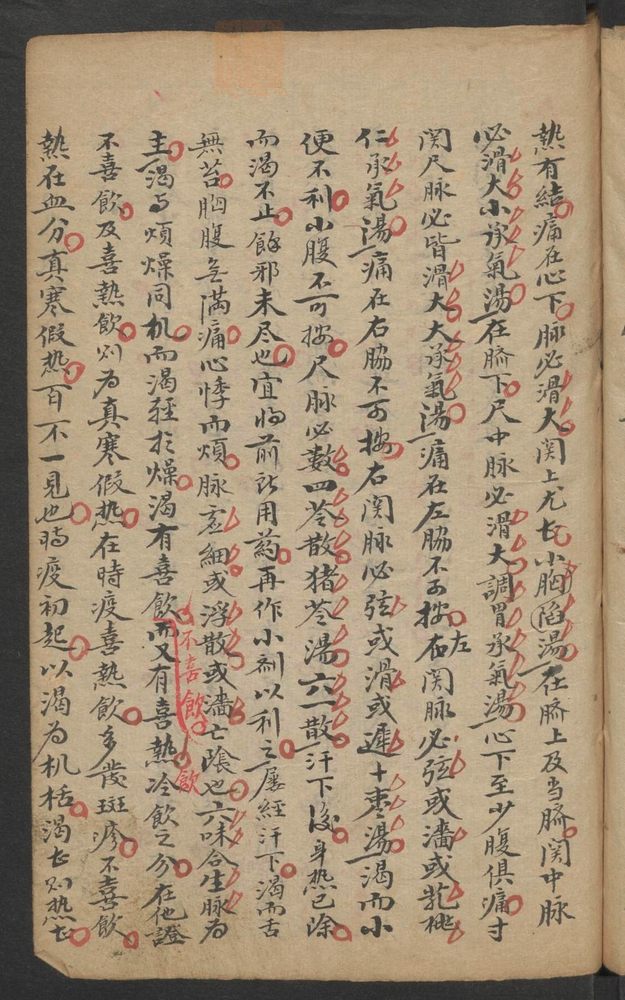 熱有結痛在心下脈必滑大関上尤甚小胸陷湯在臍上及当臍関中脈
必滑大小承氣湯在臍下尺中脈必滑大調胃承氣湯心下至少腹俱痛寸
関尺脈必皆滑大大承氣湯痛在左脇不可按左関脈必弦或濇或芤桃
仁承氣湯痛在右脇不可按右関脈必弦或滑或遲十枣湯渴而小
便不利小腹不可按尺脈必數四苓散猪苓湯六一散汗下後身熱已除
而渴不止餘邪未尽也宜将前所用药再作小剂以利之屡經汗下渴而舌
無苔胸腹無滿痛心悸而煩脈虛細或浮散或濇亡陰也六味合生脈为
主渴与煩燥同机而渴轻於燥渴有喜飲不喜飲而又有喜熱飲冷飲之分在他證
不喜飲及喜熱飲则为真寒假热在時疫喜熱飲多發斑疹不喜飲
熱在血分真寒假热百不一見也時疫初起以渴为机栝渴甚则热甚